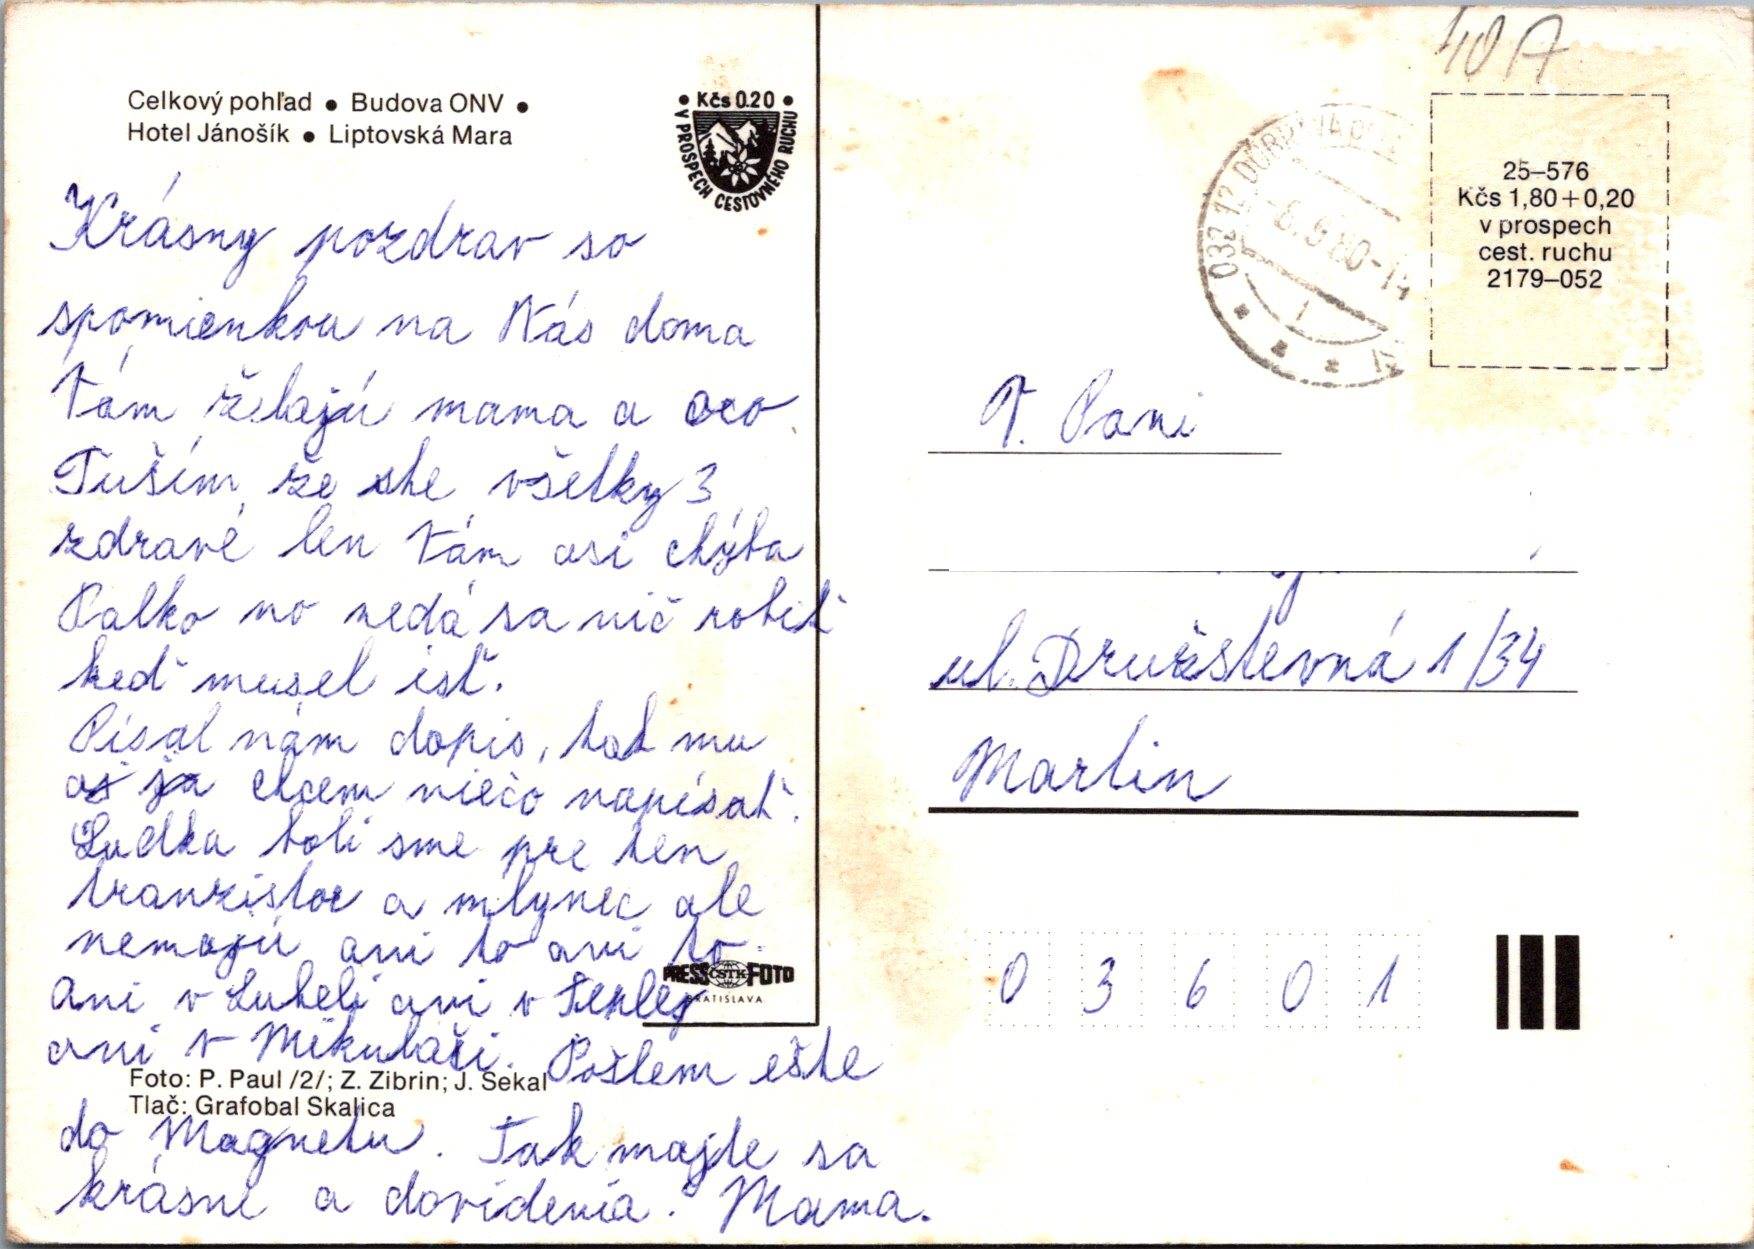 Celkový pohľad • Budova ONV •
Hotel Jánošík • Liptovská Mara
• Kčs 0.20 •
V PROSPECH CESTOVNÉHO RUCHU
Krásny pozdrav so
spomienkou na Nás doma
Vám želajú mama a oco.
Tuším, že ste všetky 3
zdravé len Vám asi chýba
Palko no nedá sa nič robiť
keď musel isť.
Písal nám dopis, tak mu
aj ja chcem niečo napísať.
Ludka boli sme pre ten
tranzistor a mlynec ale
nemajú ani to ani to.
Ani v Lubeli ani v Teplej
ani v Mikuláši. Pošlem ešte
do Magnetu. Tak majte sa
krásne a dovidenia. Mama.
PRESS ČSTK FOTO
BRATISLAVA
Foto: P. Paul /2/; Z. Zibrin; J. Sekal
Tlač: Grafobal Skalica
40 A
25–576
Kčs 1,80+0,20
v prospech
cest. ruchu
2179–052
032 12
80-14
V. Pani
ul. Družstevná 1/34
Martin
0 3 6 0 1